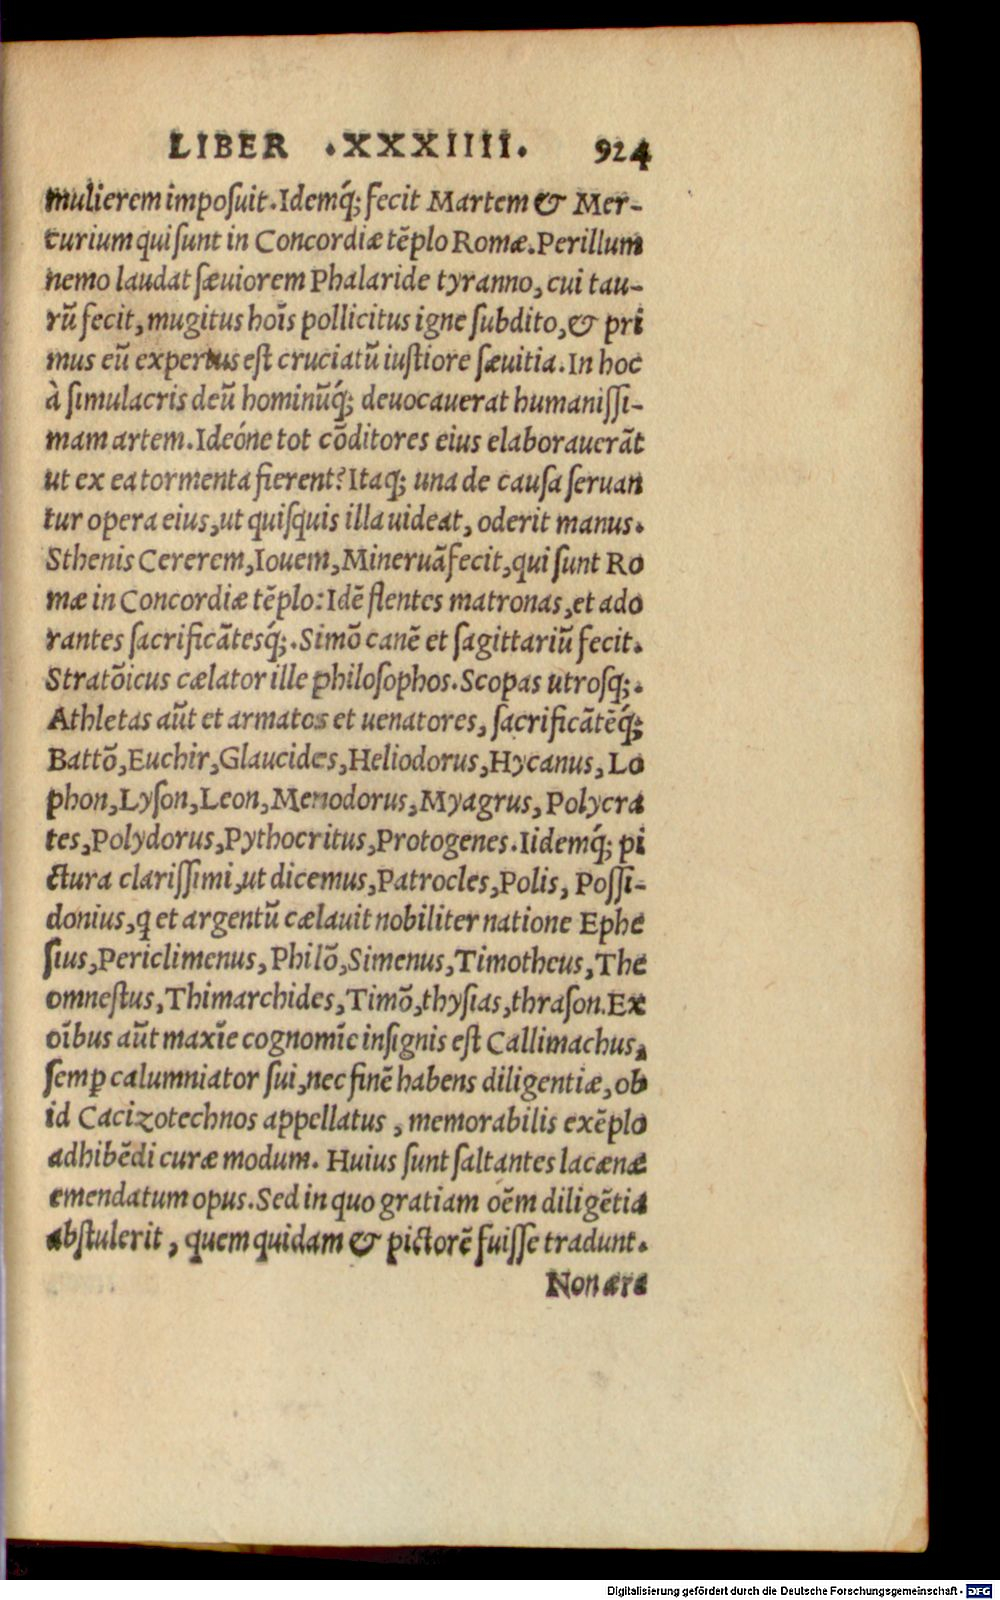 LIBER .XXXIIII. 924
mulierem imposuit. Idemq́; fecit Martem & Mer-
curium qui sunt in Concordiæ tẽplo Romæ. Perillum
nemo laudat sæuiorem Phalaride tyranno, cui tau-
rũ fecit, mugitus hoĩs pollicitus igne subdito, & pri
mus eũ expertus est cruciatũ iustiore sæuitia. In hoc
à simulacris deũ hominũq́; deuocauerat humanissi-
mam artem. Ideóne tot cõditores eius elaborauerãt
ut ex ea tormenta fierent? Itaq; una de causa seruan
tur opera eius, ut quisquis illa uideat, oderit manus.
Sthenis Cererem, Iouem, Mineruã fecit, qui sunt Ro
mæ in Concordiæ tẽplo: Idẽ flentes matronas, et ado
rantes sacrificãtesq́;. Simõ canẽ et sagittariũ fecit.
Stratõicus cælator ille philosophos. Scopas utrosq;.
Athletas aũt et armatos et uenatores, sacrificãtẽq́;
Battõ, Euchir, Glaucides, Heliodorus, Hycanus, Lo
phon, Lyson, Leon, Menodorus, Myagrus, Polycra
tes, Polydorus, Pythocritus, Protogenes. Iidemq́; pi
ctura clarissimi, ut dicemus, Patrocles, Polis, Possi-
donius, q et argentũ cælauit nobiliter natione Ephe
sius, Periclimenus, Philõ, Simenus, Timotheus, The
omnestus, Thimarchides, Timõ, thysias, thrason. Ex
oĩbus aũt maxĩe cognomĩe insignis est Callimachus,
semꝑ calumniator sui, nec finẽ habens diligentiæ, ob
id Cacizotechnos appellatus, memorabilis exẽplo
adhibẽdi curæ modum. Huius sunt saltantes lacænæ
emendatum opus. Sed in quo gratiam oẽm diligẽtia
abstulerit, quem quidam & pictorẽ fuisse tradunt.
Non æra
Digitalisierung gefördert durch die Deutsche Forschungsgemeinschaft - DFG